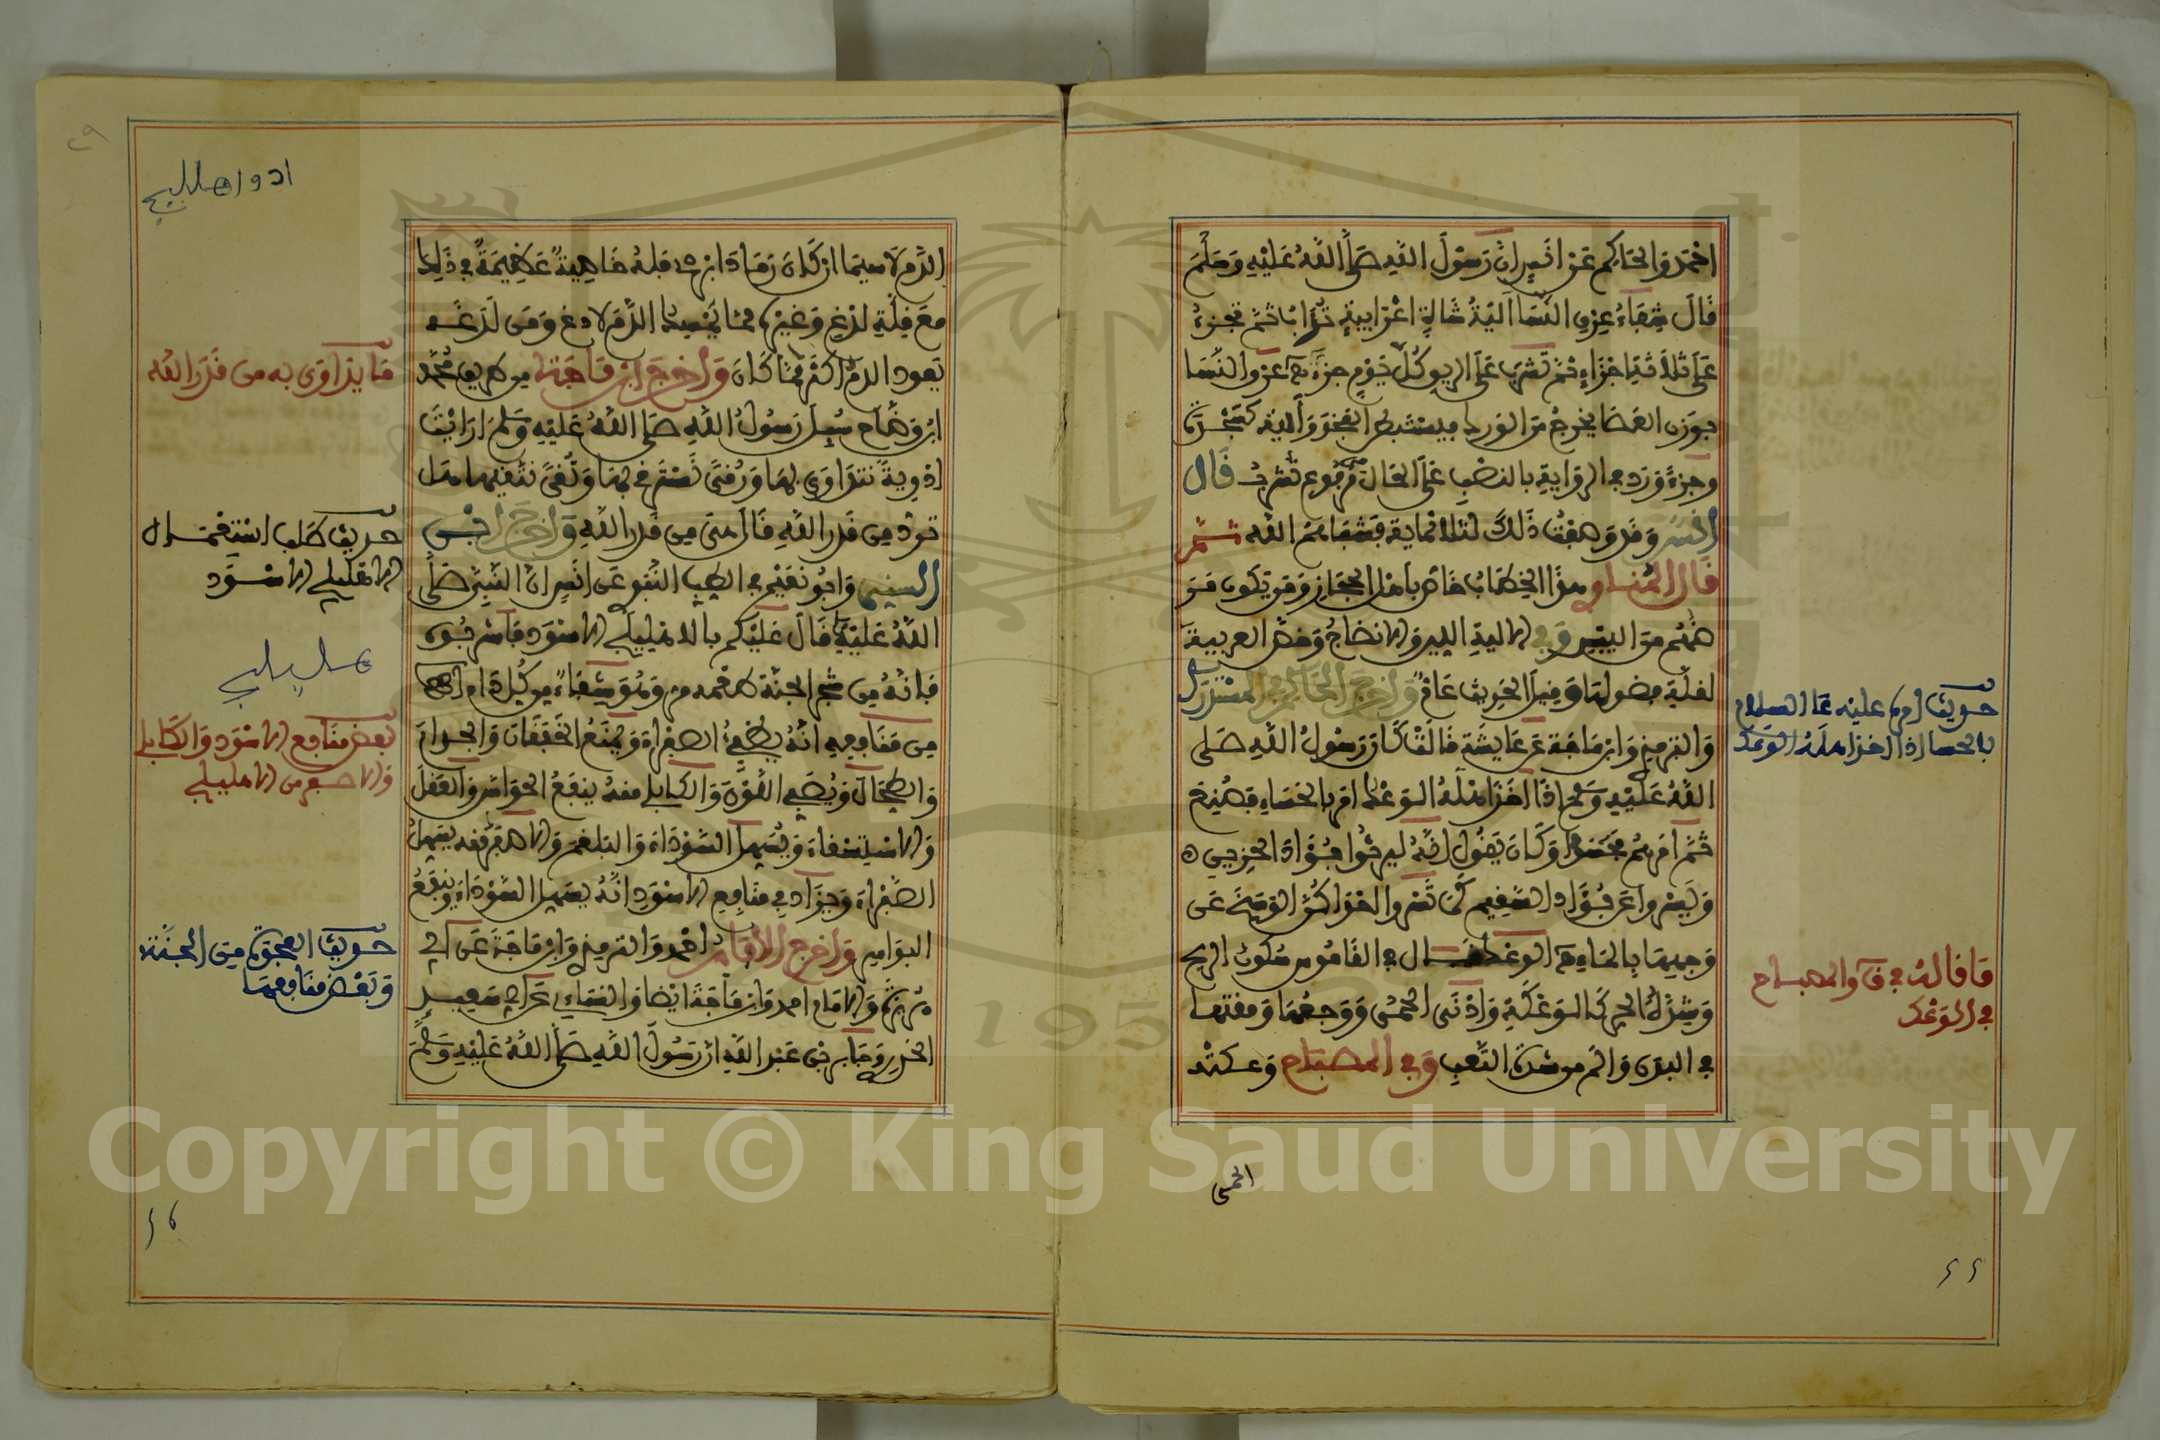 احمد والحاكم عن انس ان رسول الله صلى الله عليه وسلم
قال شفاء عرق النسا الية شاة اعرابية تذاب ثم تجزء
على ثلاثة اجزاء ثم تشرب على الريق كل يوم جزء عرق والنسا
بوزن العصا يخرج من الورك فيستبطن الفخذ والية كسجدة
وجزء ورد في الرواية بالنصب على الحال مرفوع تشرب قال
انس وقد وصفت ذلك لثلاثماية فشفاهم الله ثم
قال المناوي هذا الخطاب خاص باهل الحجاز ومن يكون
منهم من اليبس وفي الالية اللين والانضاج وخص العربية
لقلة فضولها وقيل الحديث عام واخرج الحاكم في المستدرك
والترمذي وابن ماجة عن عايشة قالت كان رسول الله صلى
الله عليه وسلم اذا اخذ اهله الوعك امر بالحساء فصنع
ثم امرهم فحسوا وكان يقول انه ليرتوا فؤاد الحزين
ويسروا عن فؤاد السقيم كما تسروا احداكن الوسخ عن
وجهها بالماء الوعك قال في القاموس سكون الريح
وشدة الحر كالوعكة واذى الحمى ووجعها ومغثها
في البدن والم من شدة التعب وفي المصباح وعكته
حديث امره عليه السلام
بالحساء اذا اخذ اهله الوعك
ما قاله في ق والمصباح
في الوعك
الحمى
٢٢
٢٩
ادو اهليلج
الدم لا سيما ان كان رمادا فان له خاصية عظيمة في ذلك
مع قلة لذع وغيره مما يحبس الدم لادغ ومتى لذعه
يعود الدم اكثر مما كان واخرج ابن ماجة من طريق محمد
ابن وهام سيل رسول الله صلى الله عليه وسلم ارايت
ادوية نتداوى بها ورقى نسترقي بها وتقى نتقيها هل
ترد من قدر الله قال هي من قدر الله واخرج ابن
السني وابو نعيم في الطب النبوي عن انس ان النبي صلى
الله عليه قال عليكم بالاهليلج الاسود فاشربوه
فانه من شجر الجنة طعمه مر وهو شفاء من كل داء
من منافعه انه يطفئ الصفراء وينفع الخفقان والجذام
والطحال ويقوي القوة والكابلي منه ينفع الحواس والعقل
والاستسقاء ويسهل السوداء والبلغم والاصفر منه يسهل
الصفراء ويزاد في منافع الاسود انه يسهل السوداء وينفع
البواسير واخرج الامام احمد والترمذي وابن ماجة عن ابي
هريرة والامام احمد وابن ماجة ايضا والنساءي عن ابي سعيد
الخدري وجابر بن عبد الله ان رسول الله صلى الله عليه وسلم
ما يتداوى به من قدر الله
حديث طلب استعمال
الاهليلج الاسود
هليلج
بعض منافع الاسود والكابلي
والاصفر من الاهليلج
حديث العجوة من الجنة
وبعض منافعها